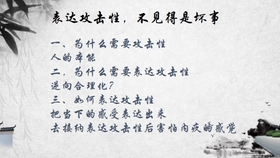 表达攻击性，不见得是坏事
一、为什么需要攻击性
人的本能
二，为什么需要表达攻击性
逆向合理化？
三、如何表达攻击性
把当下的感受表达出来
去接纳表达攻击性后害怕内疚的感觉